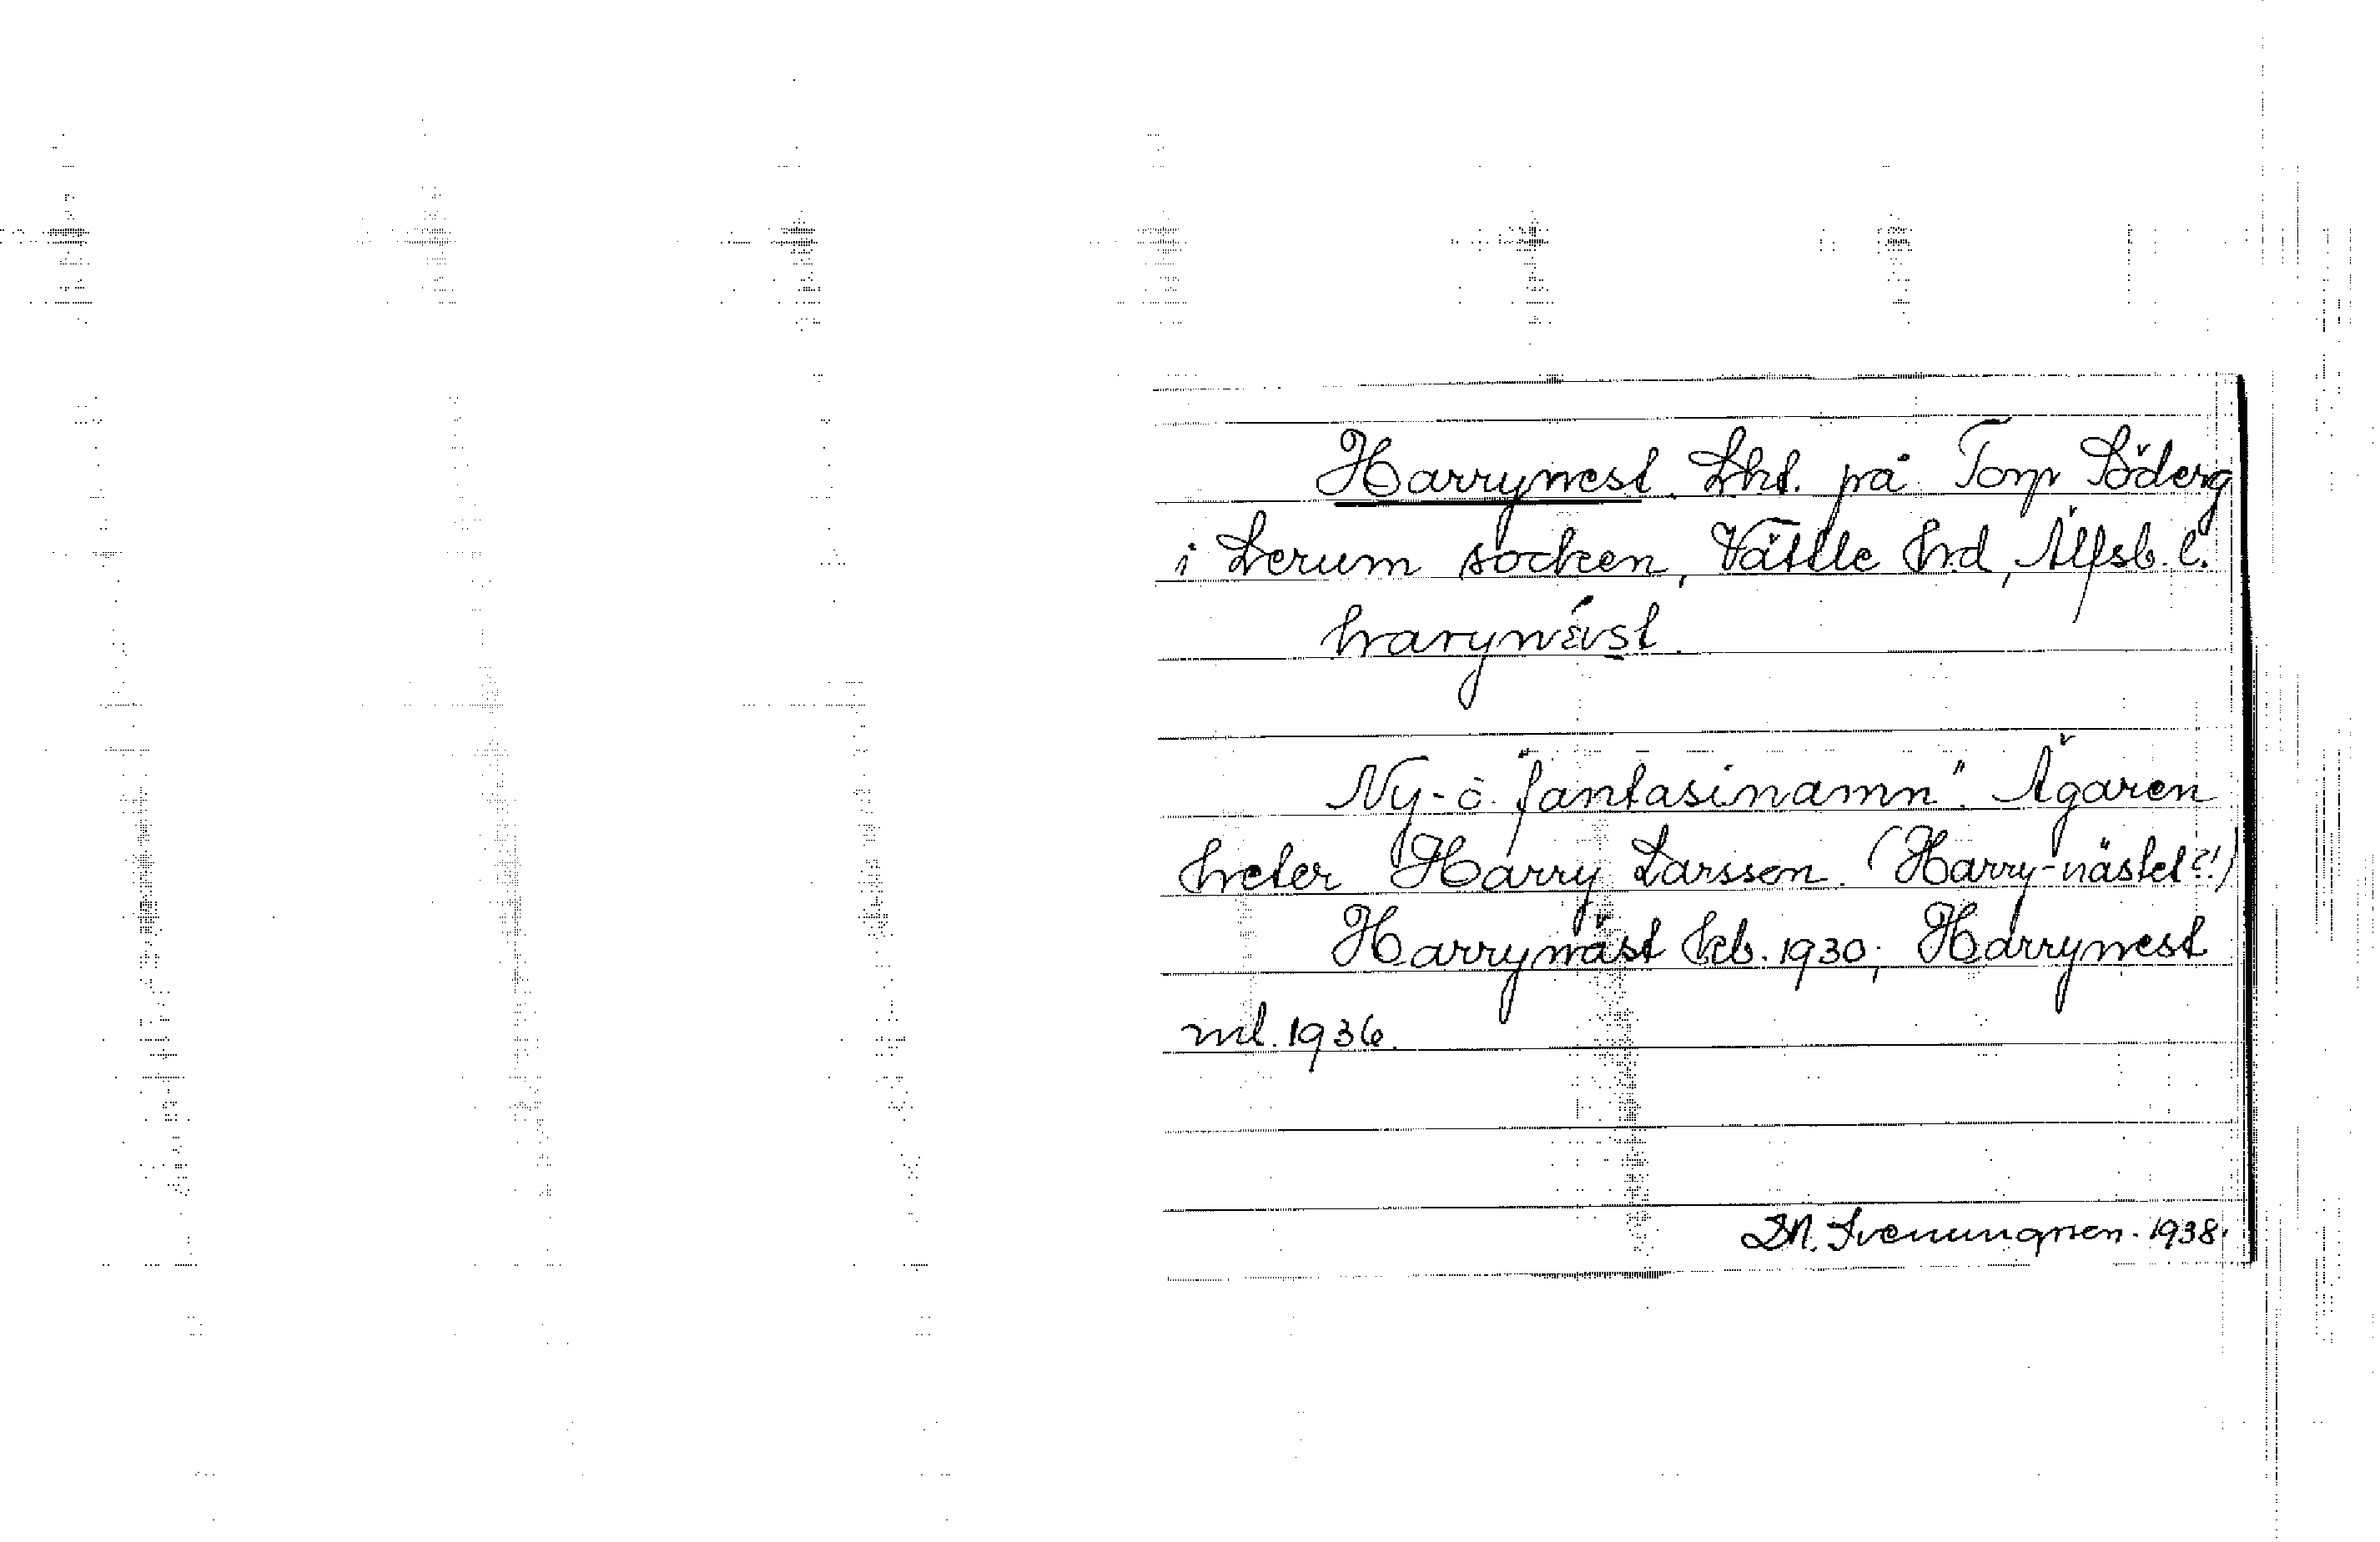 Harrynest. Lht. på Torp Söderg
i Lerum socken, Vättle hd, Älfsb. l.
harynɛ́st.
Ny- o. "fantasinamn". Ägaren
heter Harry Larsson. (Harry-nästet?!)
Harrynäst kb. 1930; Harrynest
ml. 1936.
D.N. Svenungsson. 1938.